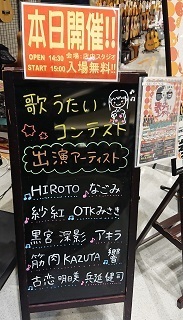 本日開催!!
OPEN 14:30 会場:店内スタジオ
START 15:00 入場無料!!
歌うたい
コンテスト
出演アーティスト
HIROTO なごみ
紗紅 OTKみさき
黒宮 深影 アキラ
筋肉KAZUTA 響
古恋 明日美 兵延 健司